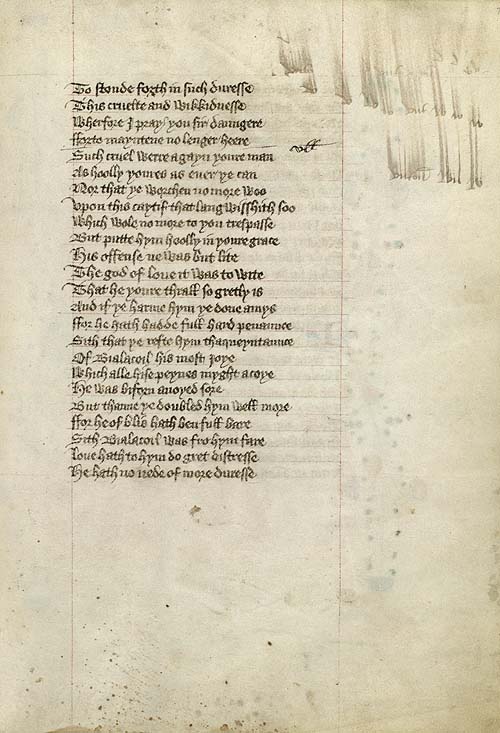 To stonde forth in such duresse
This cruelte and wikkidnesse
Wherfore I pray you sir daungere
fforto mayntene no lenger heere
Such cruel werre agayn youre man
As hoolly youres as euer ye can
Nor that ye worchen no more woo
Vpon this caytif that langwisshith soo
Which wole no more to you trespasse
But putte hym hoolly in youre grace
His offense ne was but lite
The god of loue it was to wite
That he youre thrall so gretly is
And if ye harme hym ye done amys
ffor he hath hadde full hard penaunce
Sith that ye refte hym thaqueyntaunce
Of Bialacoil his most joye
Which alle hise peynes myght acoye
He was biforn anoyed sore
But thanne ye doubled hym well more
ffor he of blis hath ben full bare
Sith Bialacoil was fro hym fare
Loue hath to hym do gret distresse
He hath no nede of more duresse